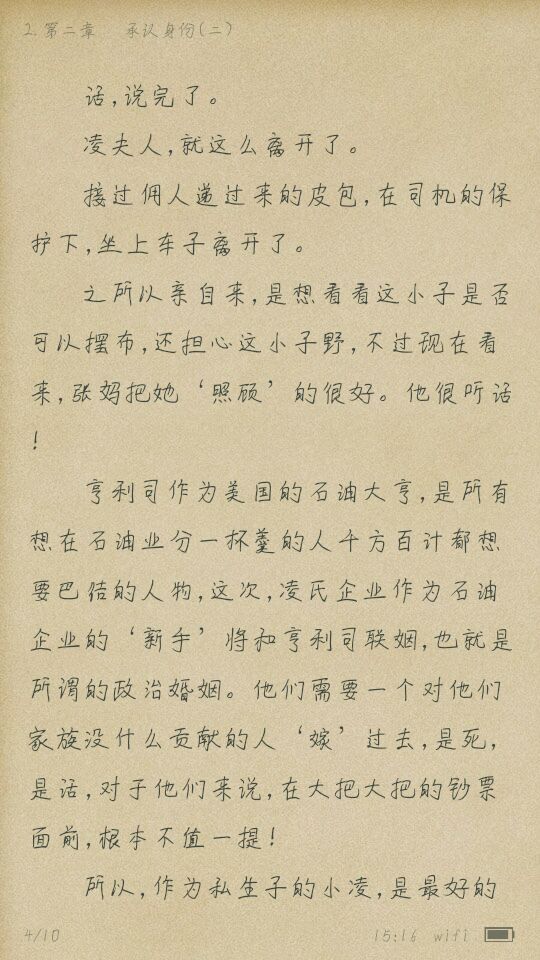 2.第二章 承认身份(二)
话,说完了。
凌夫人,就这么离开了。
接过佣人递过来的皮包,在司机的保
护下,坐上车子离开了。
之所以亲自来,是想看看这小子是否
可以摆布,还担心这小子野,不过现在看
来,张妈把她‘照顾’的很好。他很听话
!
亨利司作为美国的石油大亨,是所有
想在石油业分一杯羹的人千方百计都想
要巴结的人物,这次,凌氏企业作为石油
企业的‘新手’将和亨利司联姻,也就是
所谓的政治婚姻。他们需要一个对他们
家族没什么贡献的人‘嫁’过去,是死,
是话,对于他们来说,在大把大把的钞票
面前,根本不值一提!
所以,作为私生子的小凌,是最好的
4/10 15:16 wifi